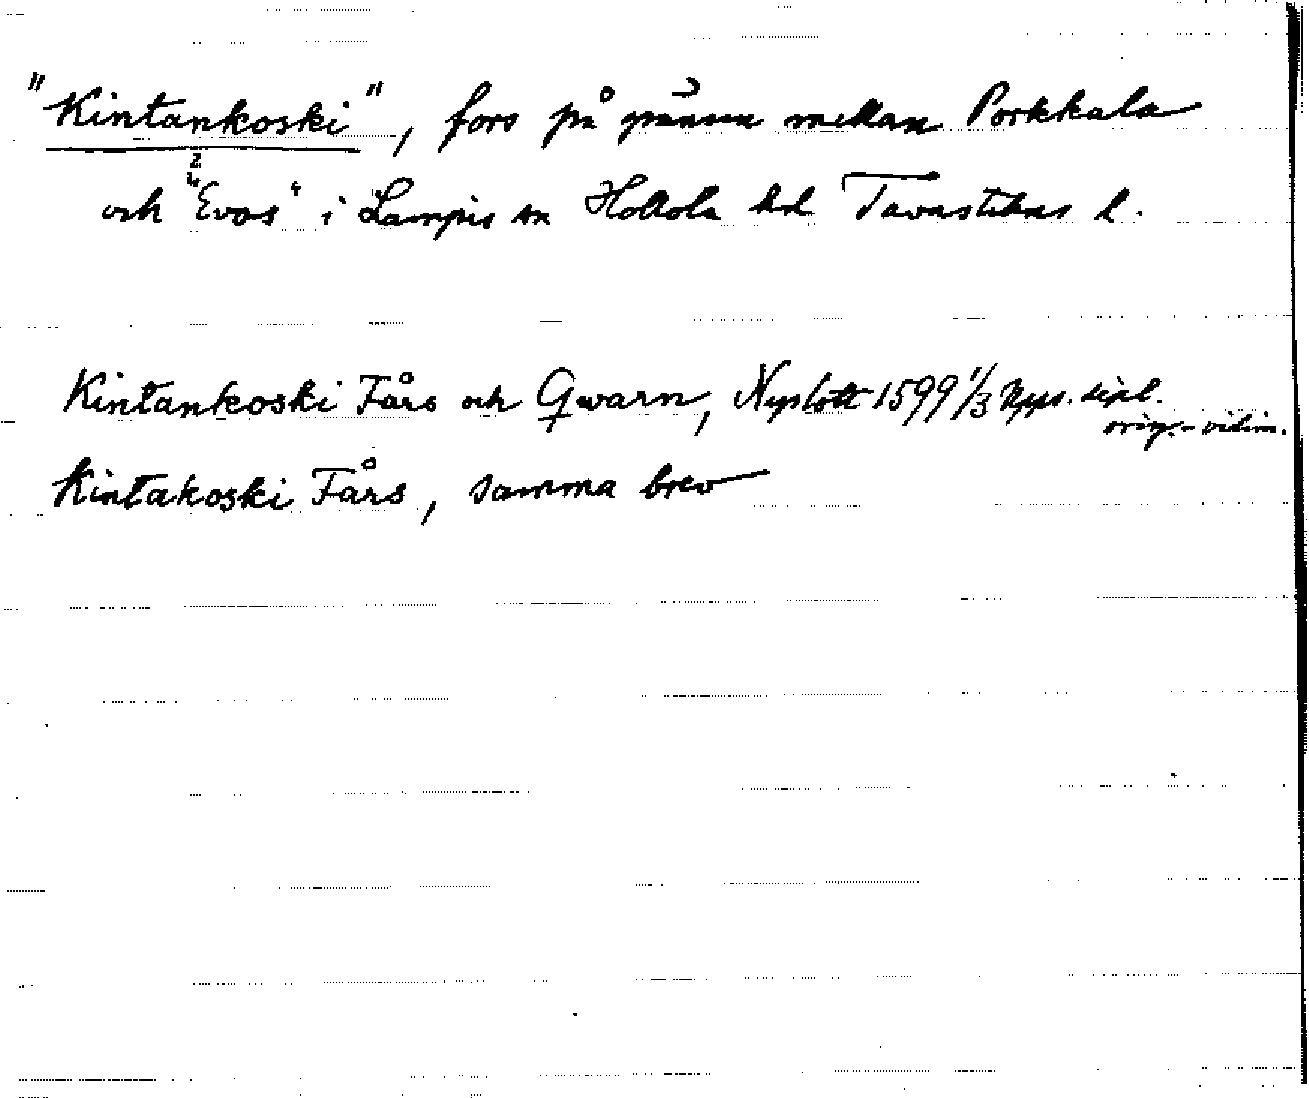 "Kintankoski", fors på gränsen mellan Porkkala
och "Evos" i Lampis sn Hollola hd Tavastehus l.
Kintankoski Fårs och Qwarn, Nyslott 1599 1/3 Upps. dipl.
orig.-vidim.
Kintakoski Fårs, samma brev